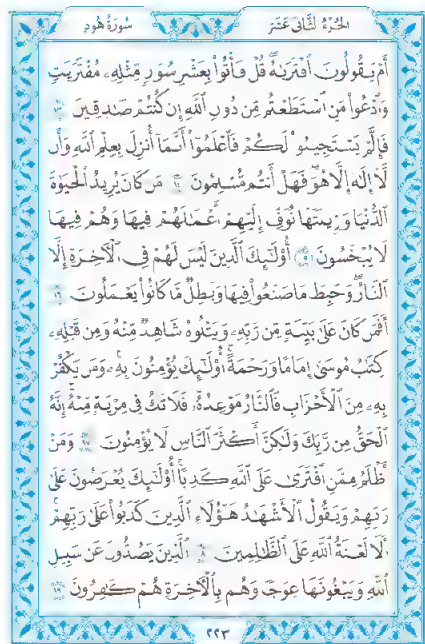 سُورَةُ هُودٍ الجُزْءُ الثَّانِي عَشَرَ
أَمْ يَقُولُونَ ٱفْتَرَىٰهُ قُلْ فَأْتُوا۟ بِعَشْرِ سُوَرٍ مِّثْلِهِۦ مُفْتَرَيَٰتٍ
وَٱدْعُوا۟ مَنِ ٱسْتَطَعْتُم مِّن دُونِ ٱللَّهِ إِن كُنتُمْ صَٰدِقِينَ ١٣
فَإِلَّمْ يَسْتَجِيبُوا۟ لَكُمْ فَٱعْلَمُوٓا۟ أَنَّمَآ أُنزِلَ بِعِلْمِ ٱللَّهِ وَأَن
لَّآ إِلَٰهَ إِلَّا هُوَ فَهَلْ أَنتُم مُّسْلِمُونَ ١٤ مَن كَانَ يُرِيدُ ٱلْحَيَوٰةَ
ٱلدُّنْيَا وَزِينَتَهَا نُوَفِّ إِلَيْهِمْ أَعْمَٰلَهُمْ فِيهَا وَهُمْ فِيهَا
لَا يُبْخَسُونَ ١٥ أُو۟لَٰٓئِكَ ٱلَّذِينَ لَيْسَ لَهُمْ فِى ٱلْءَاخِرَةِ إِلَّا
ٱلنَّارُ وَحَبِطَ مَا صَنَعُوا۟ فِيهَا وَبَٰطِلٌ مَّا كَانُوا۟ يَعْمَلُونَ ١٦
أَفَمَن كَانَ عَلَىٰ بَيِّنَةٍ مِّن رَّبِّهِۦ وَيَتْلُوهُ شَاهِدٌ مِّنْهُ وَمِن قَبْلِهِۦ
كِتَٰبُ مُوسَىٰٓ إِمَامًا وَرَحْمَةً أُو۟لَٰٓئِكَ يُؤْمِنُونَ بِهِۦ وَمَن يَكْفُرْ
بِهِۦ مِنَ ٱلْأَحْزَابِ فَٱلنَّارُ مَوْعِدُهُۥ فَلَا تَكُ فِى مِرْيَةٍ مِّنْهُ إِنَّهُ
ٱلْحَقُّ مِن رَّبِّكَ وَلَٰكِنَّ أَكْثَرَ ٱلنَّاسِ لَا يُؤْمِنُونَ ١٧ وَمَنْ
أَظْلَمُ مِمَّنِ ٱفْتَرَىٰ عَلَى ٱللَّهِ كَذِبًا أُو۟لَٰٓئِكَ يُعْرَضُونَ عَلَىٰ
رَبِّهِمْ وَيَقُولُ ٱلْأَشْهَٰدُ هَٰٓؤُلَآءِ ٱلَّذِينَ كَذَبُوا۟ عَلَىٰ رَبِّهِمْ
أَلَا لَعْنَةُ ٱللَّهِ عَلَى ٱلظَّٰلِمِينَ ١٨ ٱلَّذِينَ يَصُدُّونَ عَن سَبِيلِ
ٱللَّهِ وَيَبْغُونَهَا عِوَجًا وَهُم بِٱلْءَاخِرَةِ هُمْ كَٰفِرُونَ ١٩
٢٢٣